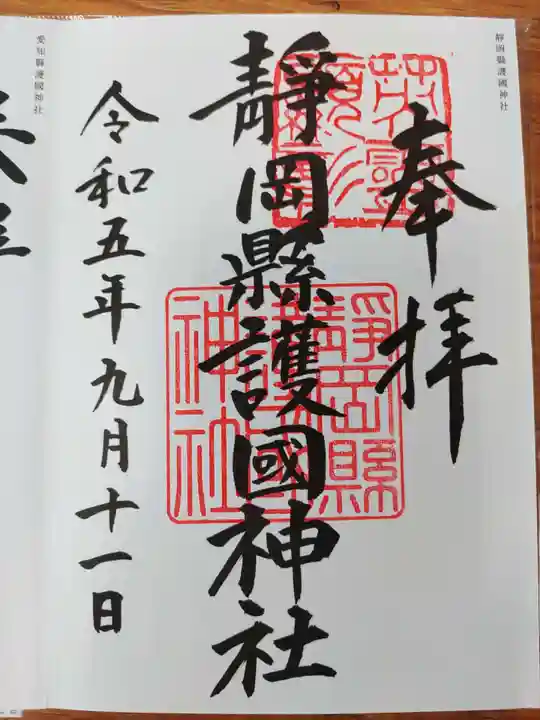 靜岡縣護國神社
奉拝
靜岡縣護國神社
令和五年九月十一日
靜岡縣護國神社
愛知縣護國神社